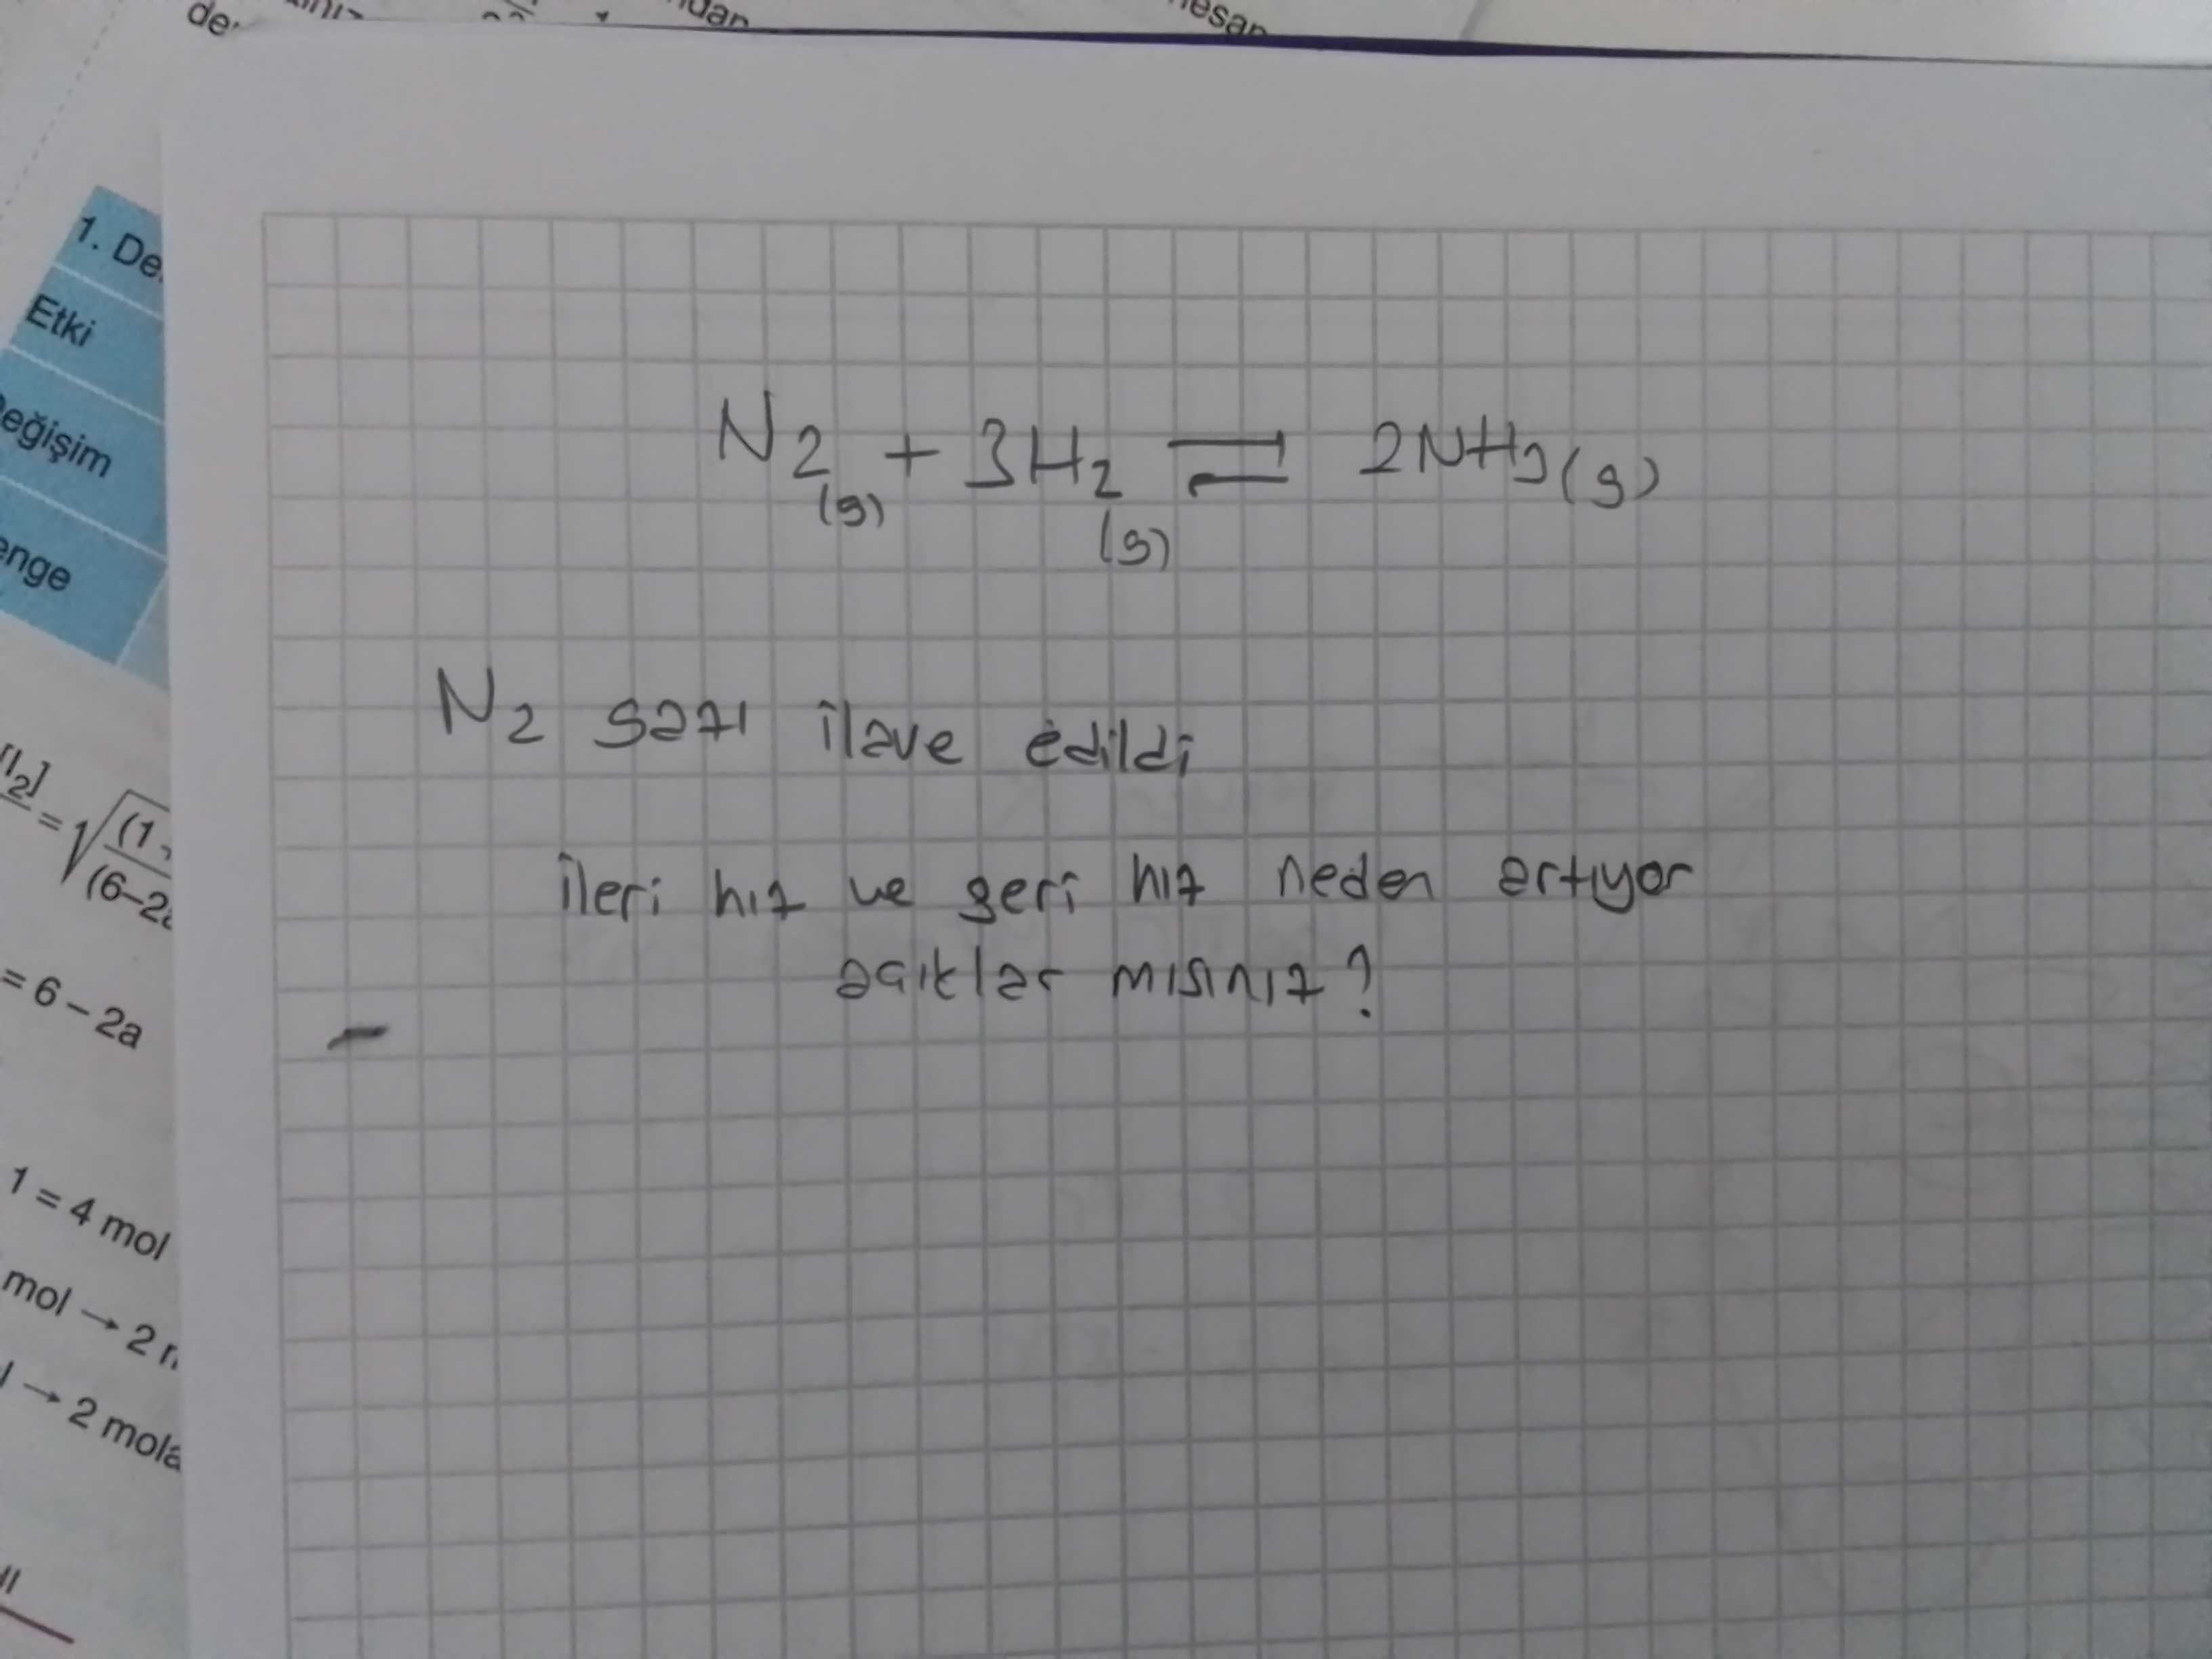 1. De
Etki
eğişim
enge
[I₂]
= √(1
(6–2
= 6 – 2a
1 = 4 mol
mol → 2
→ 2 mola
N₂(g) + 3H₂(g) ⇌ 2NH₃(g)
N₂ gazı ilave edildi
ileri hız ve geri hız neden artıyor
açıklar mısınız?